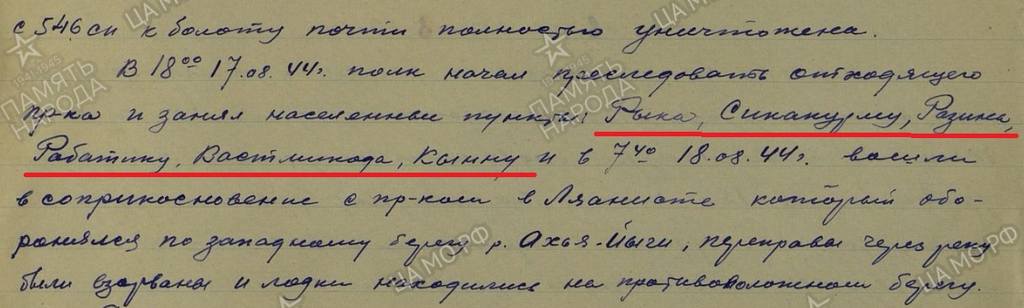 с 546 сп к болоту почти полностью уничтожена.
В 18⁰⁰ 17.08.44г. полк начал преследовать отходящего
пр-ка и занял населенные пункты: Рыка, Сикакурму, Разина,
Рабатику, Вастмикода, Кынну и в 7⁴⁰ 18.08.44г. вошли
в соприкосновение с пр-ком в Ляаниоте который обо-
ронялся по западному берегу р. Ахья-Йыги, переправы через реку
были взорваны и лодки находились на противоположном берегу.
ЦА МО РФ
1941-1945
ПАМЯТЬ
НАРОДА